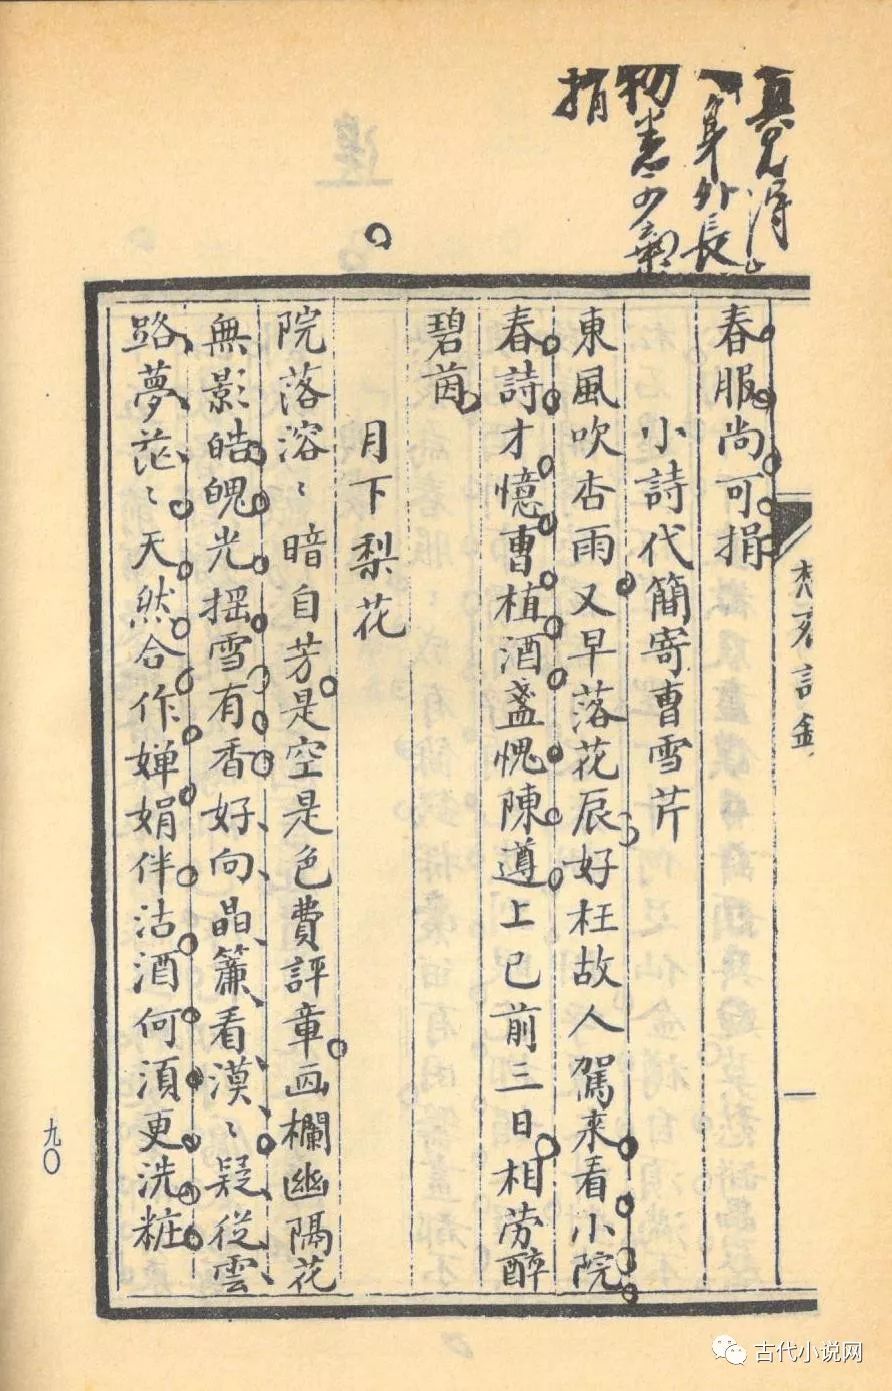 真見得
身外長
物悉可棄
捐
春服尚可捐
小詩代簡寄曹雪芹
東風吹杏雨又早落花辰好枉故人駕来看小院
春詩才憶曹植酒盞愧陳遵上巳前三日相勞醉
碧茵
月下梨花
院落溶〻暗自芳是空是色費評章画欄幽隔花
無影皓魄光摇雪有香好向晶簾看漠〻疑從雲
路夢茫〻天然合作嬋娟伴沽酒何須更洗粧
九〇
古代小说网